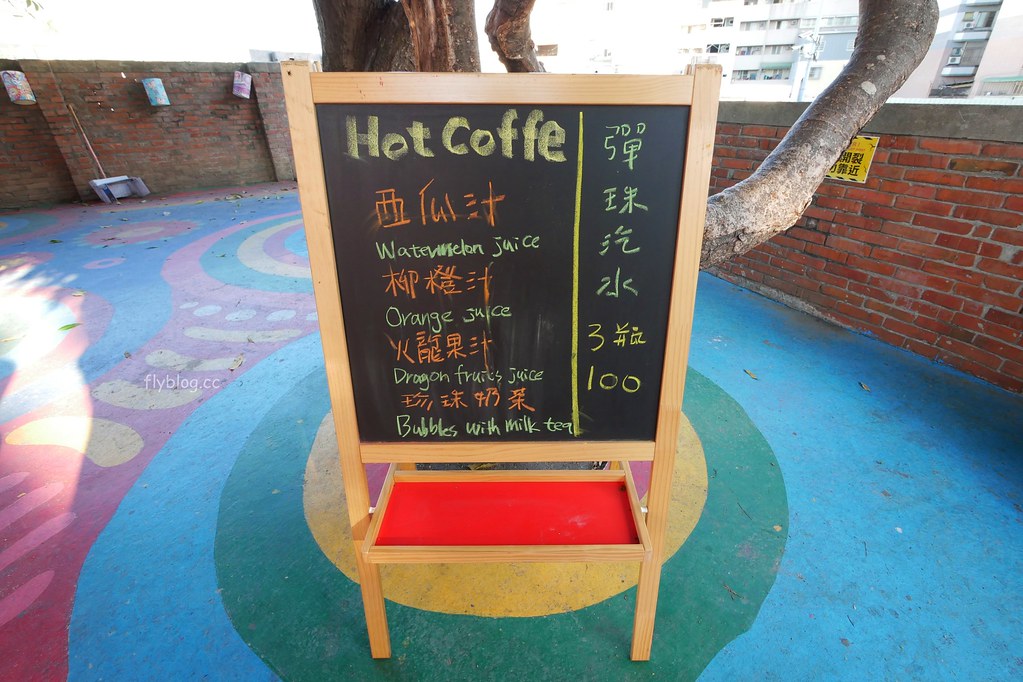 Hot Coffe
西瓜汁
Watermelon juice
柳橙汁
Orange juice
火龍果汁
Dragon fruit's juice
珍珠奶茶
Bubbles with milk tea
彈
珠
汽
水
3瓶
100
開裂
靠近
flyblog.cc